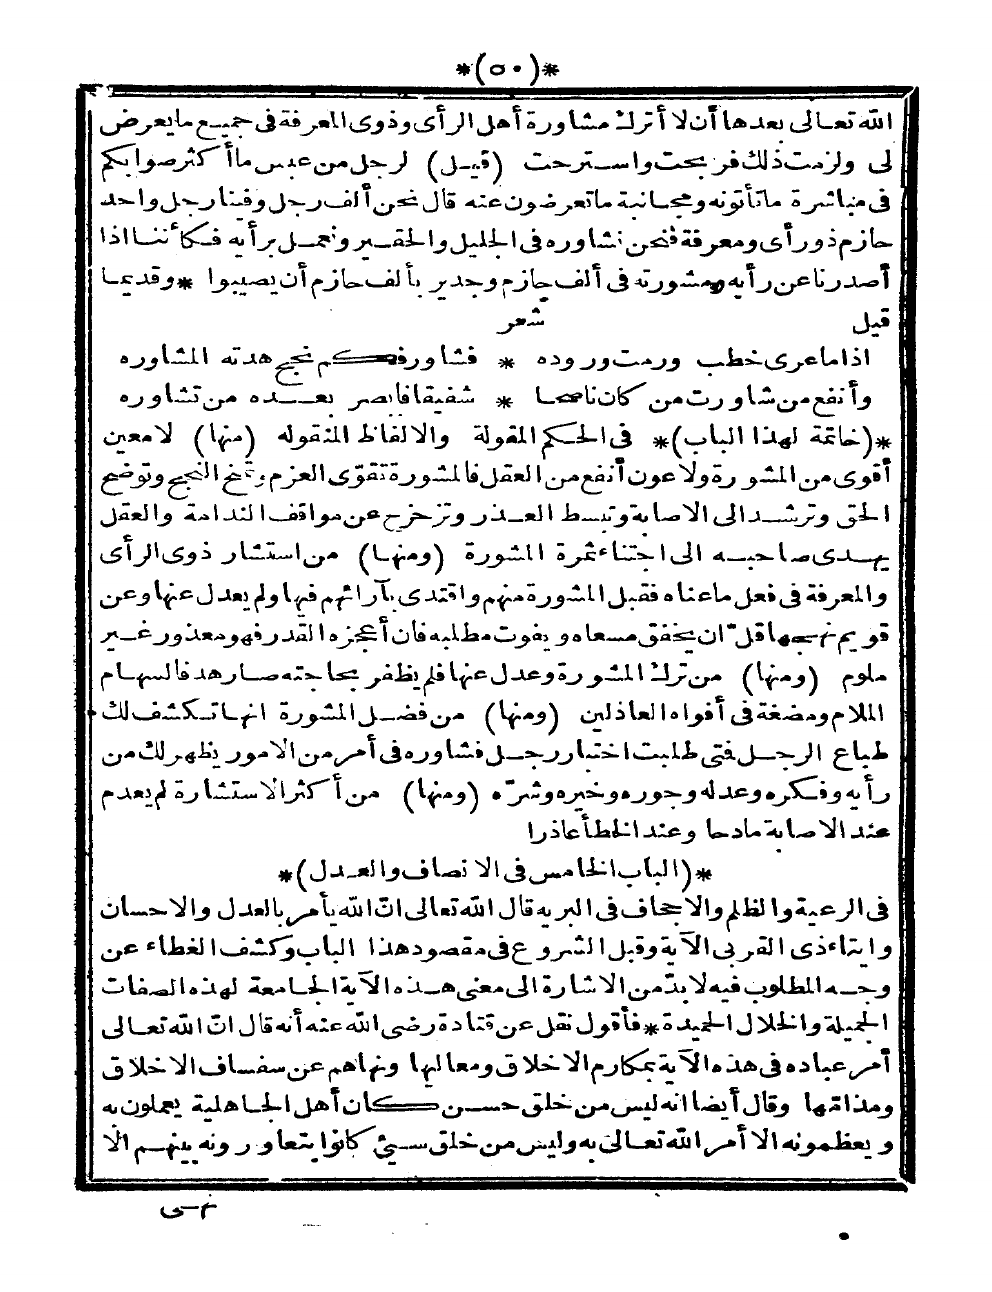 *(٥٠)*
الله تعالى بعدها أن لا أترك مشاورة أهل الرأى وذوى المعرفة فى جميع ما يعرض
لى ولزمت ذلك فربحت واسترحت (قيل) لرجل من عبس ما أكثر صوابكم
فى مباشرة ما تأتونه ومجانبة ما تعرضون عنه قال نحن ألف رجل وفينا رجل واحد
حازم ذو رأى ومعرفة فنحن نشاوره فى الجليل والحقير ونعمل برأيه فكأننا اذا
أصدرنا عن رأيه ومشورته فى ألف حازم وجدير بألف حازم أن يصيبوا * وقديما
قيل شعر
اذا ما عرى خطب ورمت وروده * فشاور فكم نجح هدته المشاوره
وأنفع من شاورت من كان ناصحا * شفيقا فابصر بعده من تشاوره
*(خاتمة لهذا الباب)* فى الحكم المقولة والالفاظ المنقوله (منها) لا معين
أقوى من المشورة ولا عون أنفع من العقل فالمشورة تقوّى العزم وتمخ النجح وتوضح
الحق وترشد الى الاصابة وتبسط العذر وتزحزح عن مواقف الندامة والعقل
يهدى صاحبه الى اجتناء ثمرة المشورة (ومنها) من استشار ذوى الرأى
والمعرفة فى فعل ما عناه فقبل المشورة منهم واقتدى بآرائهم فيها ولم يعدل عنها وعن
قويم نهجها قلّ ان يخفق مسعاه ويفوت مطلبه فان أعجزه القدر فهو معذور غير
ملوم (ومنها) من ترك المشورة وعدل عنها فلم يظفر بحاجته صار هدفا لسهام
الملام ومضغة فى أفواه العاذلين (ومنها) من فضل المشورة انها تكشف لك
طباع الرجل فتى طلبت اختبار رجل فشاوره فى أمر من الامور يظهر لك من
رأيه وفكره وعدله وجوره وخيره وشرّه (ومنها) من أكثر الاستشارة لم يعدم
عند الاصابة مادحا وعند الخطأ عاذرا
*(الباب الخامس فى الانصاف والعدل)*
فى الرعية والظلم والاجحاف فى البريه قال الله تعالى انّ الله يأمر بالعدل والاحسان
وايتاء ذى القربى الآية وقبل الشروع فى مقصود هذا الباب وكشف الغطاء عن
وجه المطلوب فيه لا بدّ من الاشارة الى معنى هذه الآية الجامعة لهذه الصفات
الجميلة والخلال الحميدة * فأقول نقل عن قتادة رضى الله عنه أنه قال انّ الله تعالى
أمر عباده فى هذه الآية بمكارم الاخلاق ومعاليها ونهاهم عن سفساف الاخلاق
ومذامّها وقال أيضا انه ليس من خلق حسن كان أهل الجاهلية يعملون به
ويعظمونه الا أمر الله تعالى به وليس من خلق سيئ كانوا يتعاورونه بينهم الا
نهى